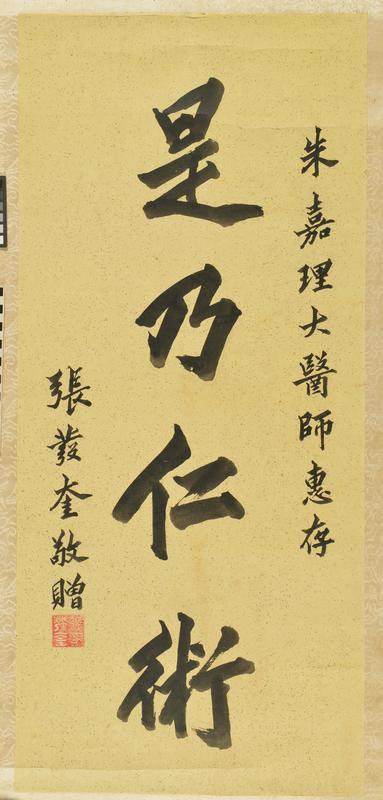 朱嘉理大醫師惠存
是乃仁術
張發奎敬贈